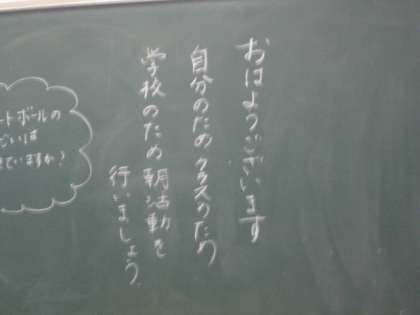 おはようございます
自分のためクラスのため
学校のため朝活動を
行いましょう。
ートボールの
ていますか？